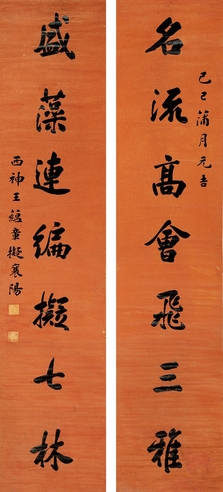 己巳蒲月元吉
名流高會飛三雅
盛藻連編擬七林
西神王蘊章擬襄陽